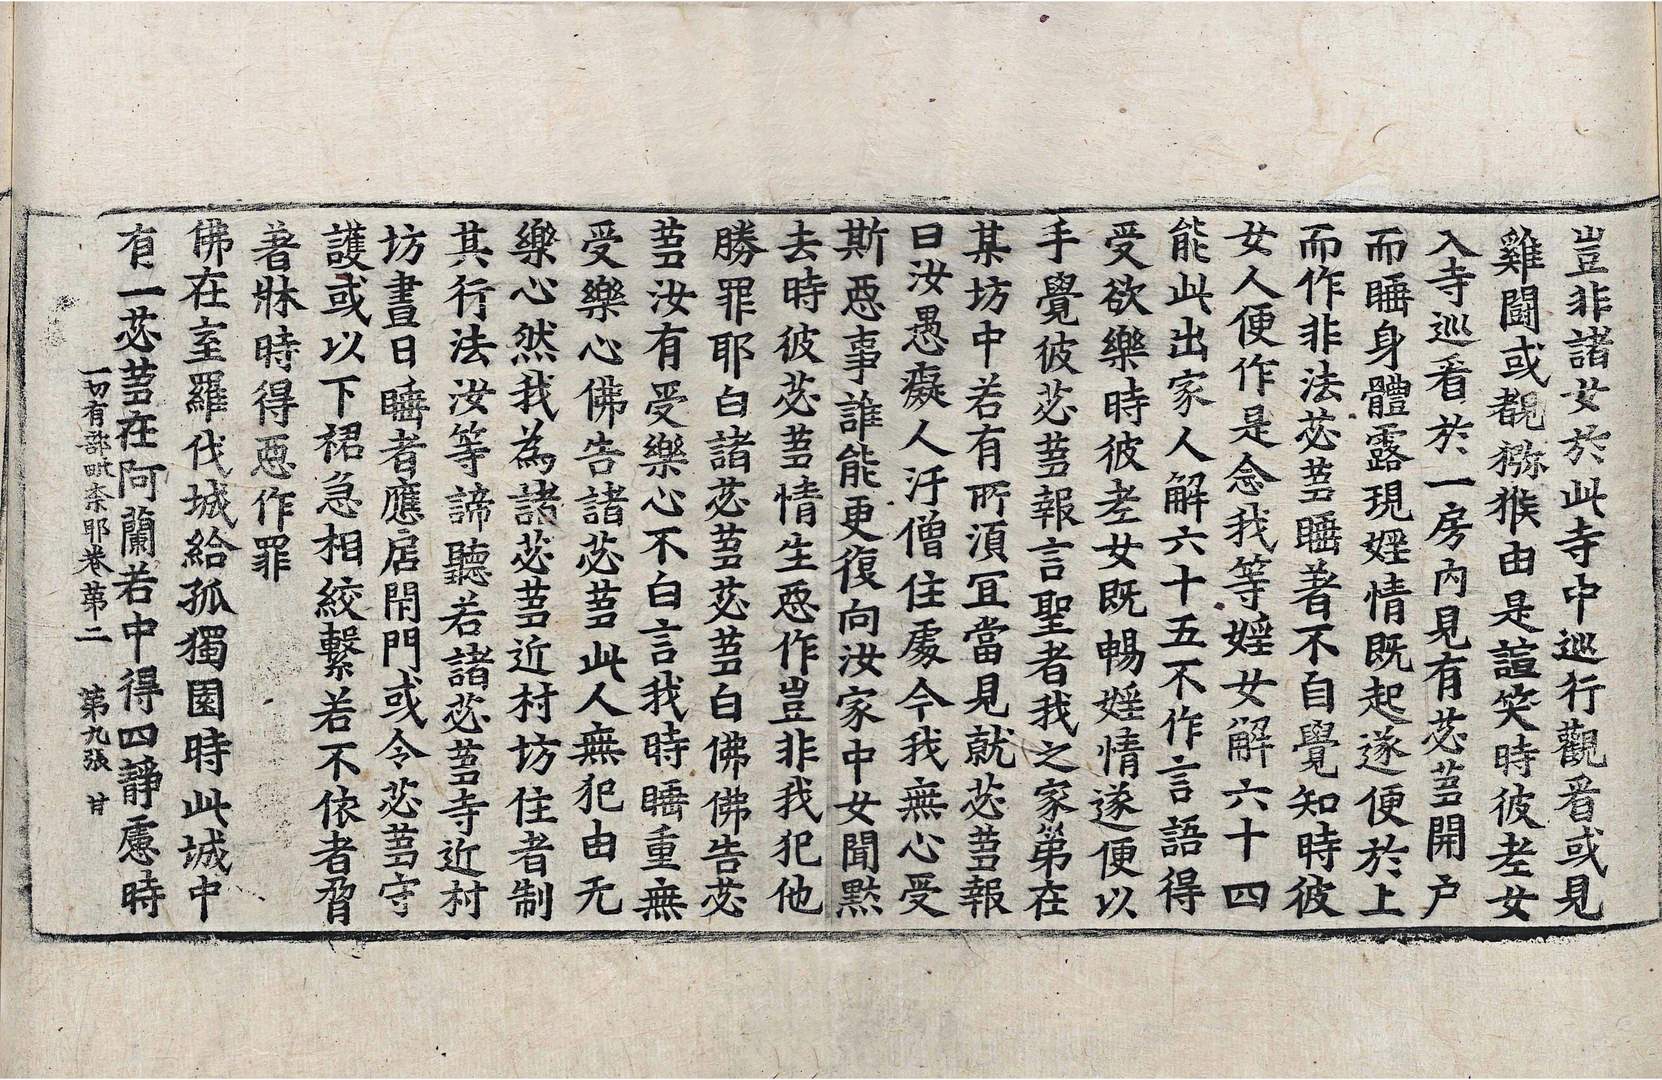 豈非諸女於此寺中巡行觀看或見
雞鬪或覩獼猴由是諠笑時彼老女
入寺巡看於一房內見有苾芻開户
而睡身體露現婬情既起遂便於上
而作非法苾芻睡著不自覺知時彼
女人便作是念我等婬女解六十四
能此出家人解六十五不作言語得
受欲樂時彼老女既暢婬情遂便以
手覺彼苾芻報言聖者我之家第在
某坊中若有所須冝當見就苾芻報
曰汝愚癡人汙僧住處今我無心受
斯惡事誰能更復向汝家中女聞黙
去時彼苾芻情生惡作豈非我犯他
勝罪耶白諸苾芻苾芻白佛佛告苾
芻汝有受樂心不白言我時睡重無
受樂心佛告諸苾芻此人無犯由无
樂心然我為諸苾芻近村坊住者制
其行法汝等諦聽若諸苾芻寺近村
坊晝日睡者應居閇門或令苾芻守
護或以下裙急相絞繫若不依者脅
著牀時得惡作罪
佛在室羅伐城給孤獨園時此城中
有一苾芻在阿蘭若中得四靜慮時
一切有部毗柰耶卷第二 第九張 甘